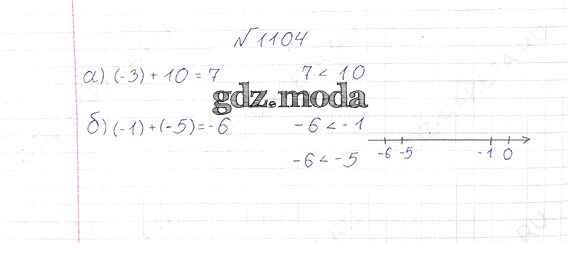 №1104
а) (-3) + 10 = 7    7 < 10
gdz.moda
б) (-1) + (-5) = -6    -6 < -1
-6 -5 -1 0
-6 < -5